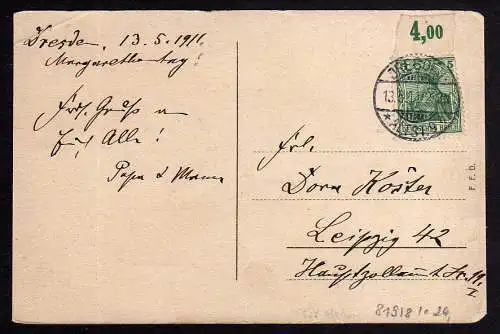 Dresden, 13.5.1911.
Margarethentag!
Frdl. Gruß u
Euch Alle!
Papa u Mama
4,00
DRESDEN
ALTST.
Frl.
Dora Köster
Leipzig 42
Hauptzollamt Str. 11.
I
P. F. B.
81918